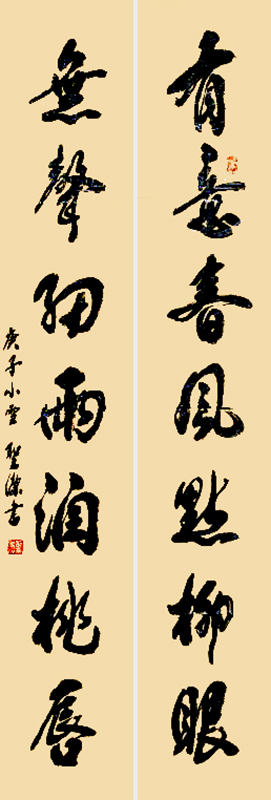 有意春風點柳眼
無聲細雨潤桃唇
庚子小雪 聖 書